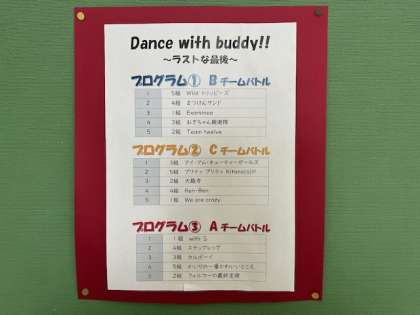 Dance with buddy!!
～ラストな最後～
プログラム① Bチームバトル
1 5組 Wild トリッピーズ
2 4組 まつけんサンド
3 1組 Exeinnee
4 3組 おぎちゃん親衛隊
5 2組 Team twelve
プログラム② Cチームバトル
1 3組 アイ・アム・キューティーガールズ
2 5組 プリティ プリティ
3 2組 大龍寺
4 4組 Ren-Ren
5 1組 We are crazy
プログラム③ Aチームバトル
1 1組 with S
2 4組 ステップレップ
3 3組 カルボーイ
4 5組
5 2組 フォルマーの最終定理